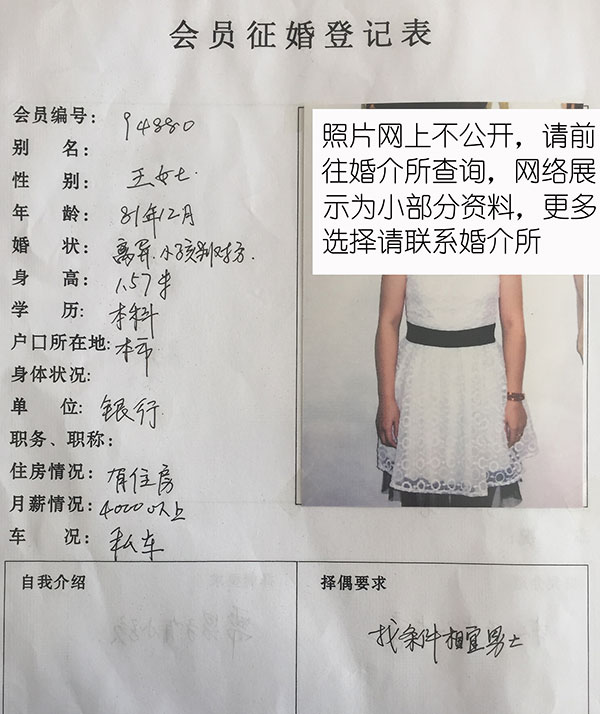 会员征婚登记表
会员编号: 94880
别 名:
性 别: 王女士
年 龄: 81年12月
婚 状: 离异.小孩判对方.
身 高: 1.57米
学 历: 本科
户口所在地: 本市
身体状况:
单 位: 银行
职务、职称:
住房情况: 有住房
月薪情况: 4000以上
车 况: 私车
照片网上不公开，请前
往婚介所查询，网络展
示为小部分资料，更多
选择请联系婚介所
自我介绍
择偶要求
找条件相宜男士